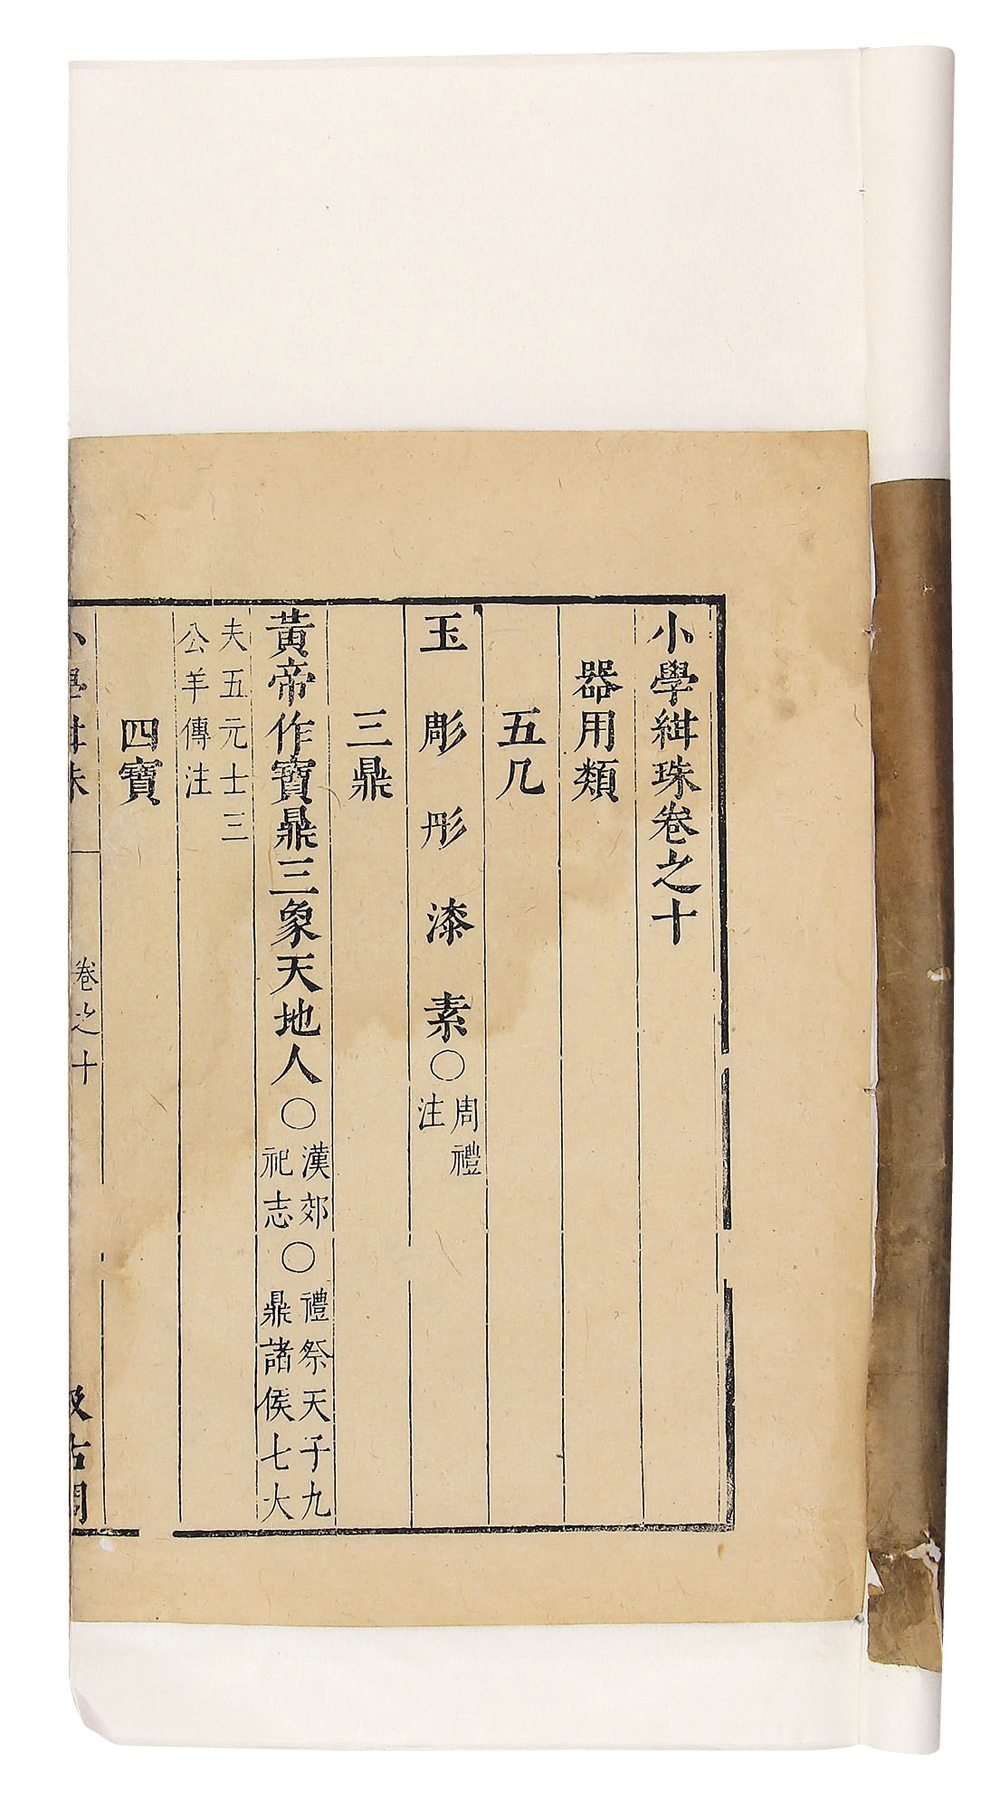 小學紺珠卷之十
器用類
五几
玉彫彤漆素○周禮注
三鼎
黃帝作寶鼎三象天地人○漢郊祀志○禮祭天子九鼎諸侯七大
夫五元士三公羊傳注
四寶
小學紺珠 卷之十 汲古閣